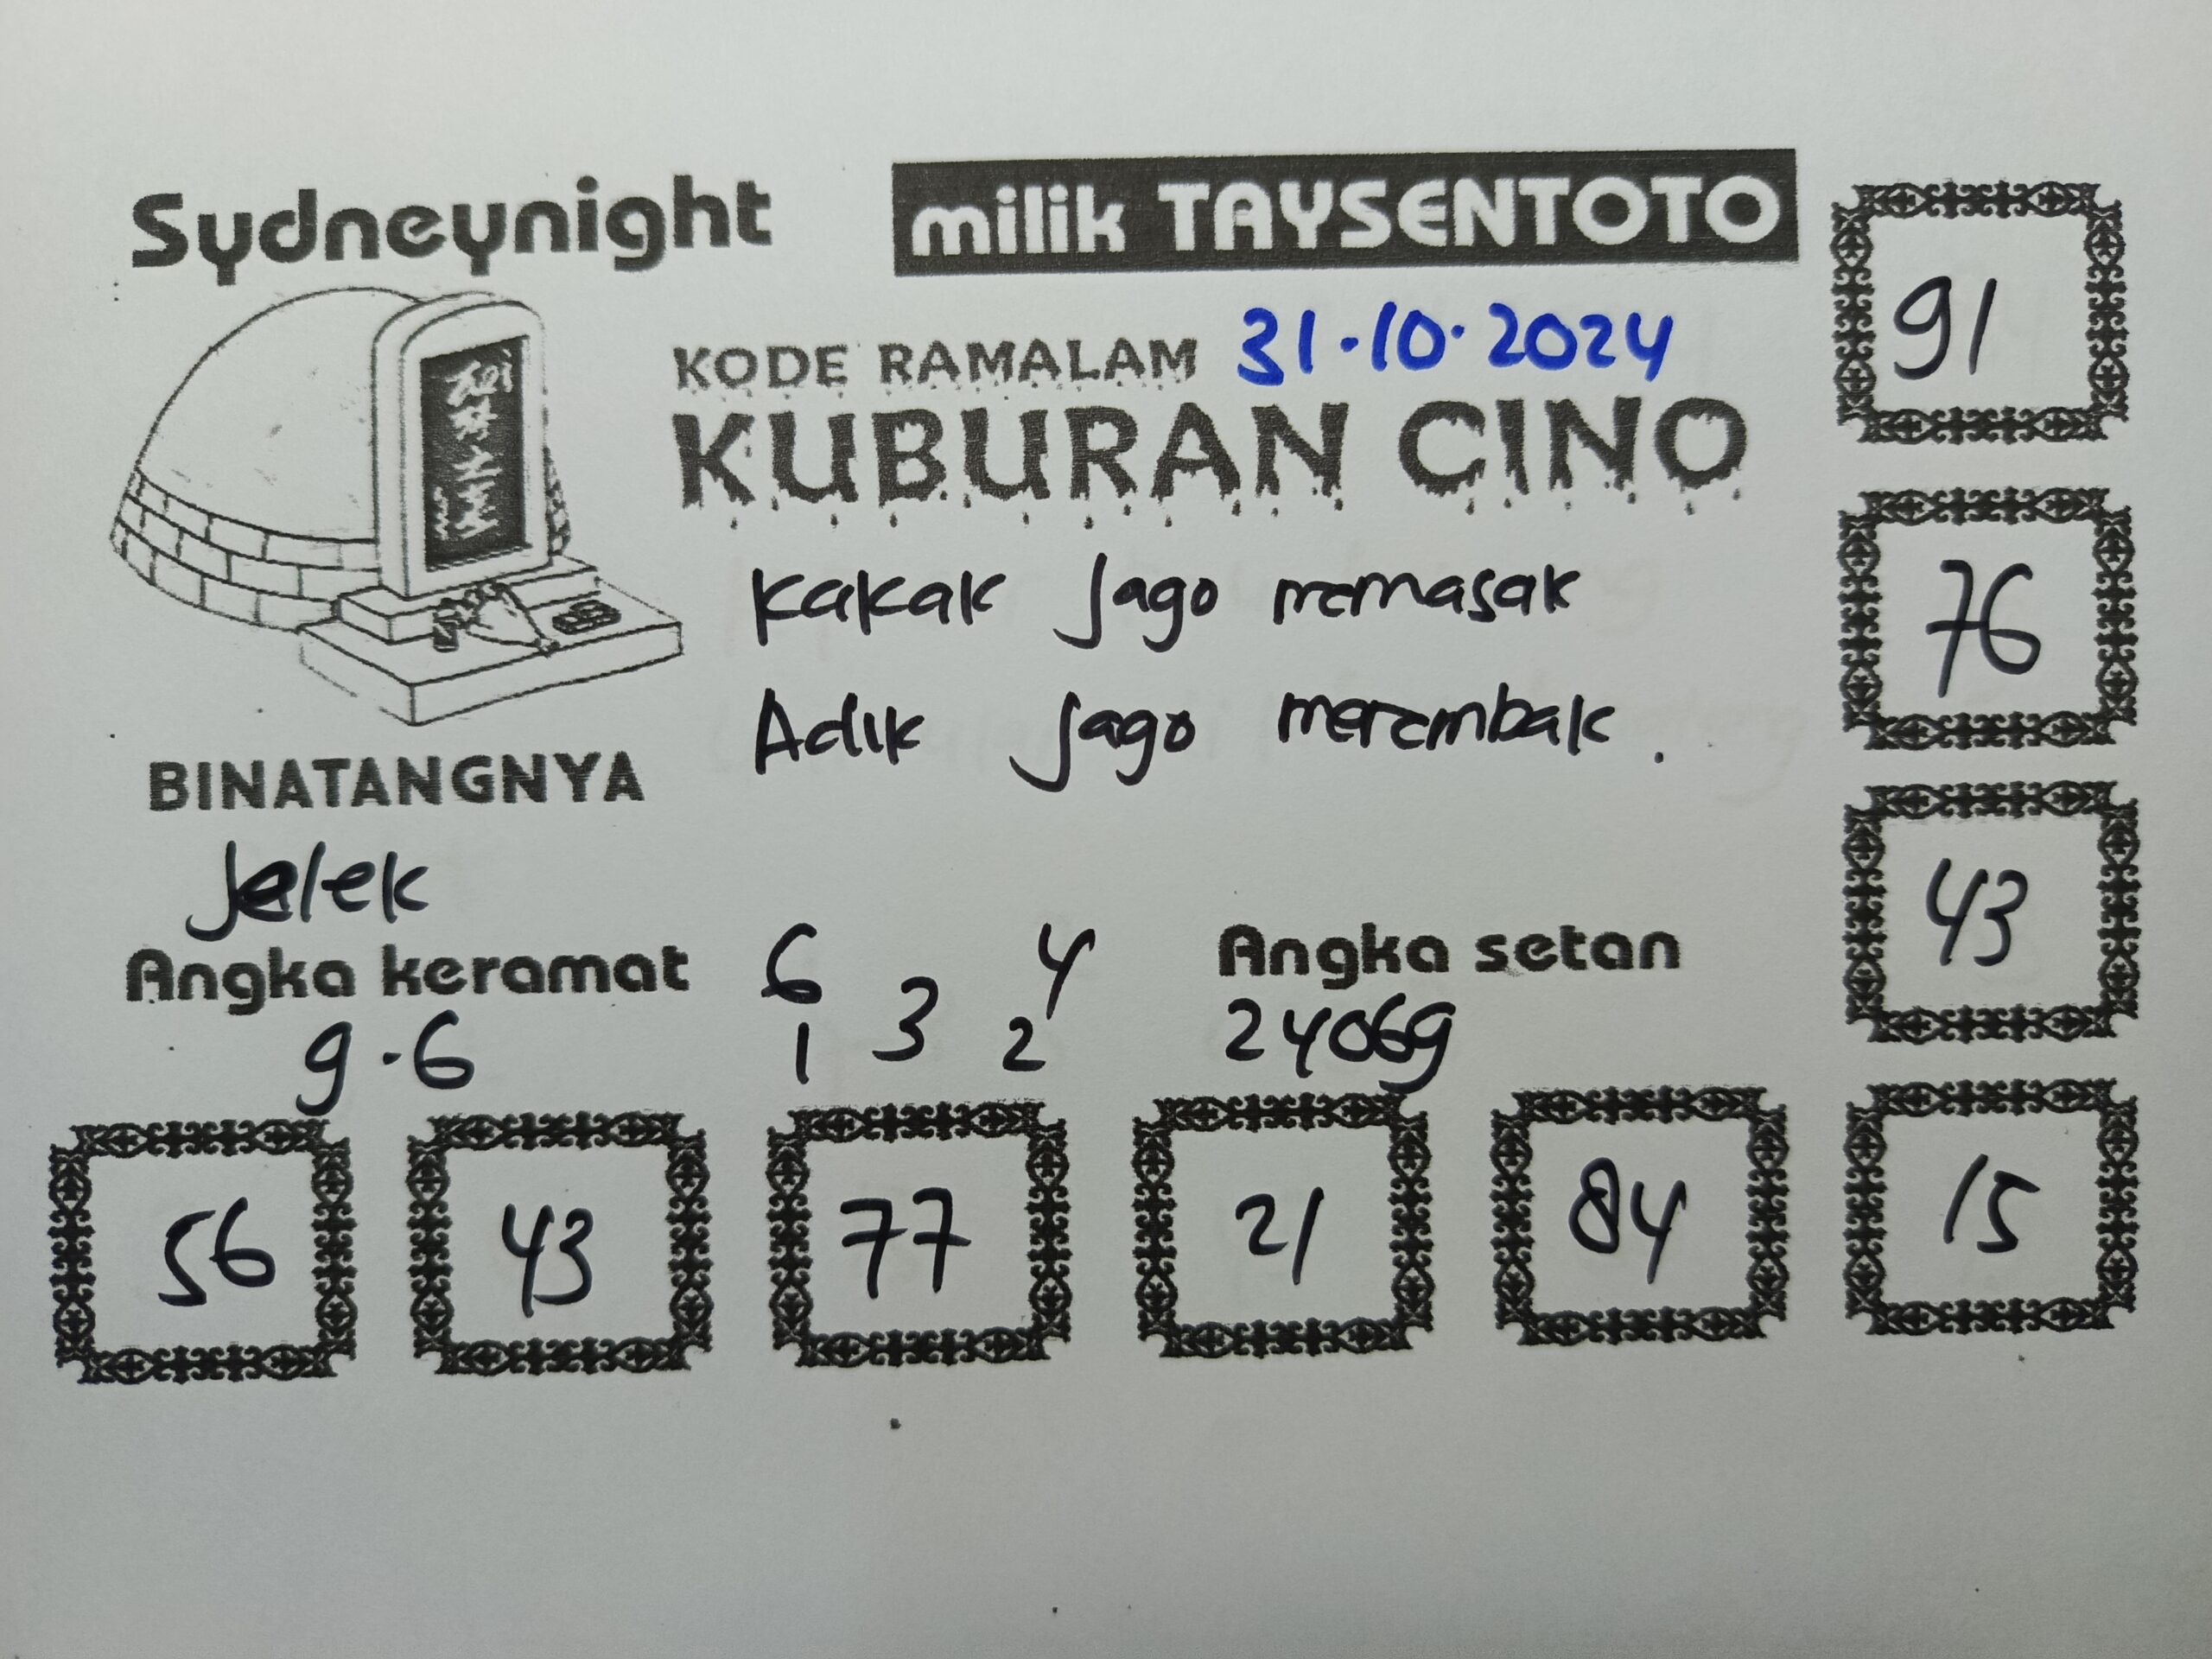 Sydneynight
milik TAYSENTOTO
KODE RAMALAM 31.10.2024
KUBURAN CINO
Kakak jago memasak
Adik jago merembak.
BINATANGNYA
Jelek
Angka keramat
9.6
6 4
1 3 2
Angka setan
24069
91
76
43
56 43 77 21 84 15